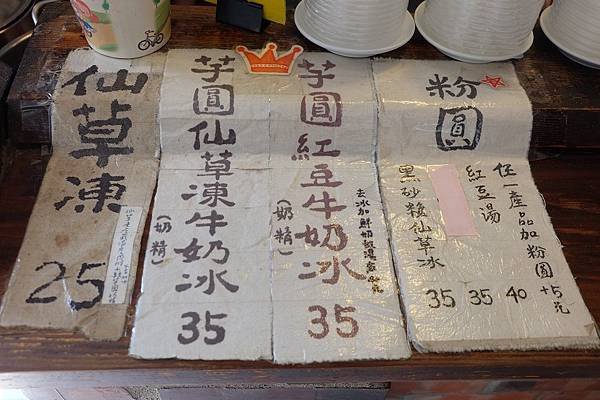 仙草凍
25
芋圓仙草凍牛奶冰
(奶精)
35
芋圓紅豆牛奶冰
(奶精)
35
粉圓
任一產品加粉圓+5元
40
紅豆湯
35
黑砂糖仙草冰
35